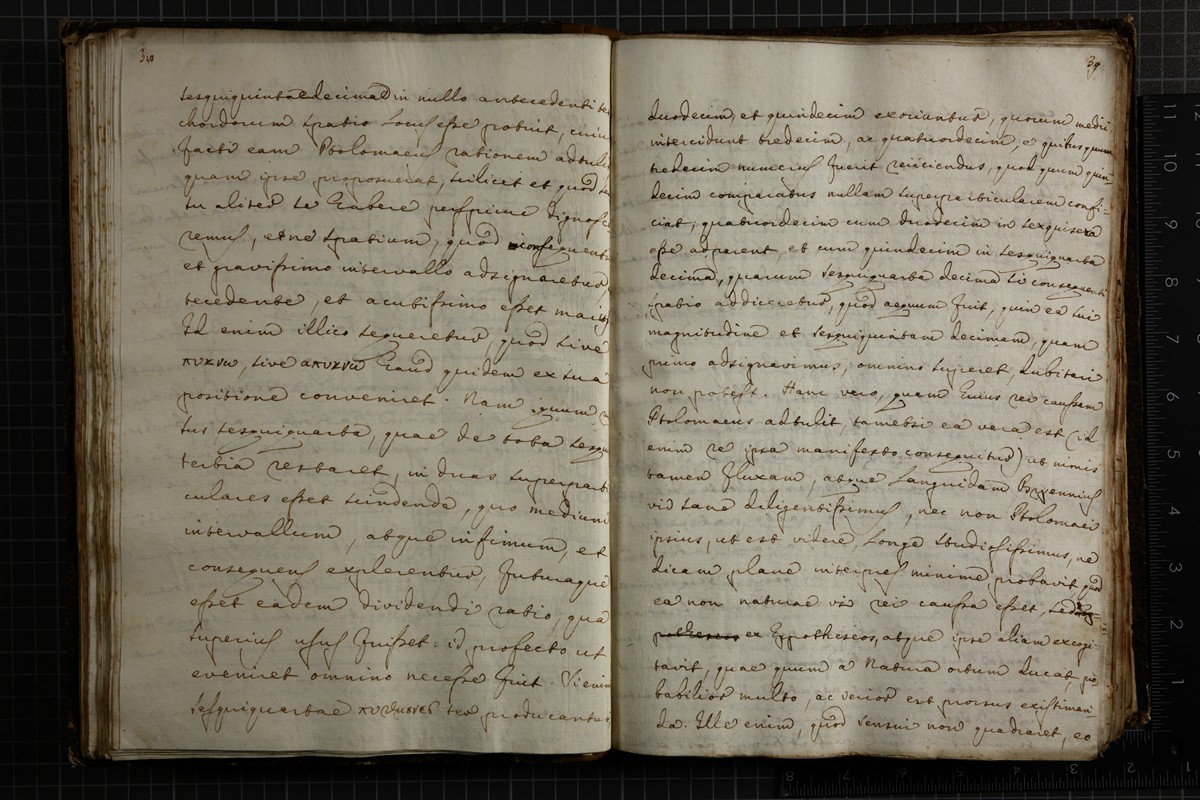 30
sesquiquintadecima in nullo antecedenti te
chordorum spatio locus esse potuit, cuiu
facti eam Ptolomaeus rationem adtuli
quam ipse proposuerat, scilicet et quod
tu aliter se habere perspicue dignosce
remus, et ne spatium, quod consequente
et gravissimo intervallo adsignaretur
tecedente, et acutissimo esset maius
Id enim illico sequeretur, quod sive
πυκνω, sive απυκνω haud quidem ex sua
positione conveniret. Nam quum
tus sesquiquarta, quae de tota sesqui
tertia restaret, in duas superparti
culares esset scindenda, quo medium
intervallum, atque infimum, et
consequens explerentur, futuraque
esset eadem dividendi ratio, qua
superius usus fuisset: id profecto ut
eveniret omnino necesse fuit. Si enim
sesquiquartae πυθμενες ter producantur
39
duodecim, et quindecim exoriuntur, quorum medii
intercidunt tredecim, ac quatuordecim, e quibus quum
tredecim numerus fuerit reiiciendus, quod quum quin-
decim comparatus nullam superparticularem confi-
ciat, quatuordecim cum duodecim in sexquisexta
esse adparent, et cum quindecim in sesquiquarta
decima, quarum sesquiquarta decima si consequenti
spatio addiceretur, quod aequum fuit, quin ea sui
magnitudine et sesquiquintam decimam, quam
primo adsignavimus, omnino superet, dubitari
non potest. Hanc vero, quam huius rei caussam
Ptolomaeus adtulit, tametsi ea vera est (id
enim re ipsa manifesto consequitur) ut nimis
tamen fluxam, atque languidam Bryennius
vir sane diligentissimus, nec non Ptolomaei
ipsius, ut est videre, longe studiosissimus, ne
dicam plane interpres minime probavit, quod
ea non naturae vis rei caussa esset, sed
ex Hypotheseos, atque ipse aliam excogi
tavit, quae quum a Natura ortum ducat, pro-
babilior multo, ac verior est prorsus existiman-
da. Ille enim, quod sensui non quadraret, eo